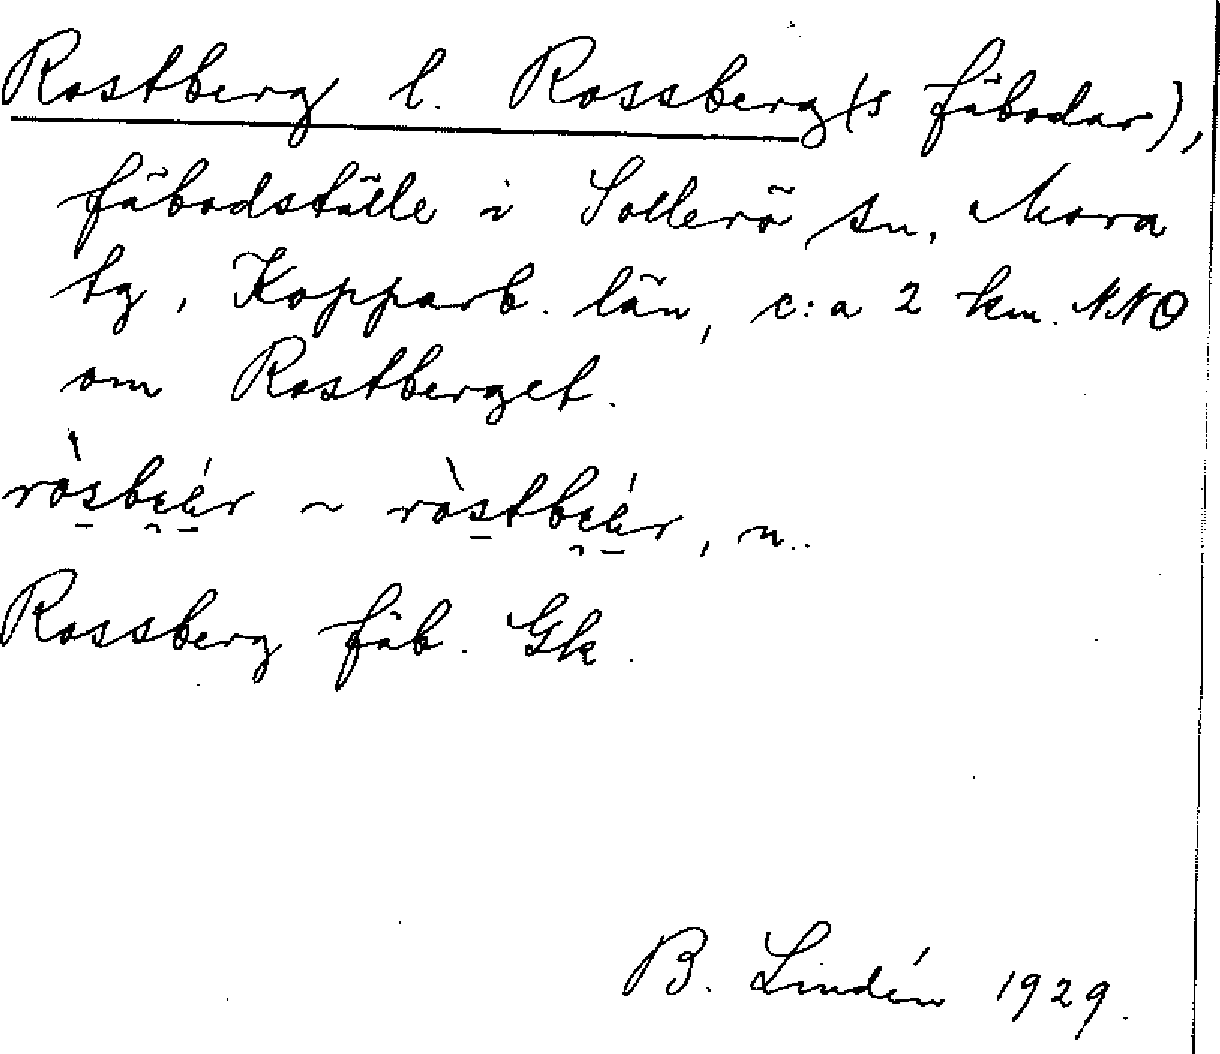 Rostberg l. Rossberg(s fäbodar),
fäbodställe i Sollerö sn, Mora
tg, Kopparb. län, c:a 2 km. NNO
om Rostberget.
ròsbe̯ér ~ ròstbe̯ér, n.
Rossberg fäb. Gk.
B. Lindén 1929.